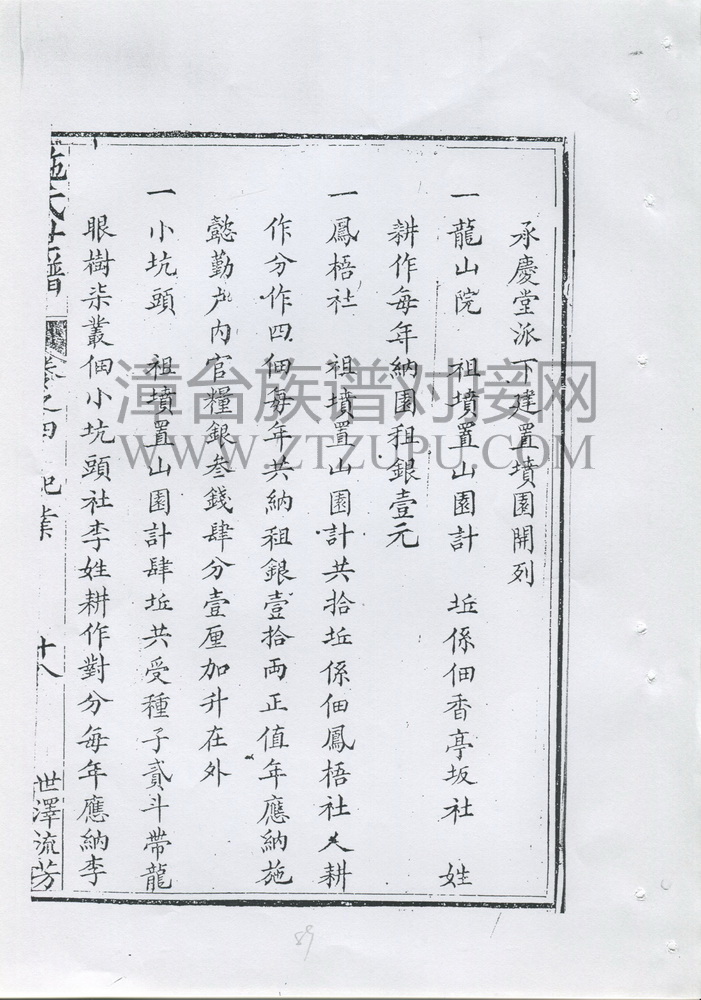 承慶堂派下建置墳園開列
一龍山院 祖墳置山園計 坵係佃香亭坂社 姓
耕作每年納園租銀壹元
一鳳梧社 祖墳置山園計共拾坵係佃鳳梧社人耕
作分作四佃每年共納租銀壹拾両正值年應納施
懿勤户内官糧銀叁錢肆分壹厘加升在外
一小坑頭 祖墳置山園計肆坵共受種子貳斗帶龍
眼樹柒叢佃小坑頭社李姓耕作對分每年應納李
施氏世譜 卷之四 祀業 十八 世澤流芳
漳台族谱对接网
WWW.ZTZUPU.COM
89